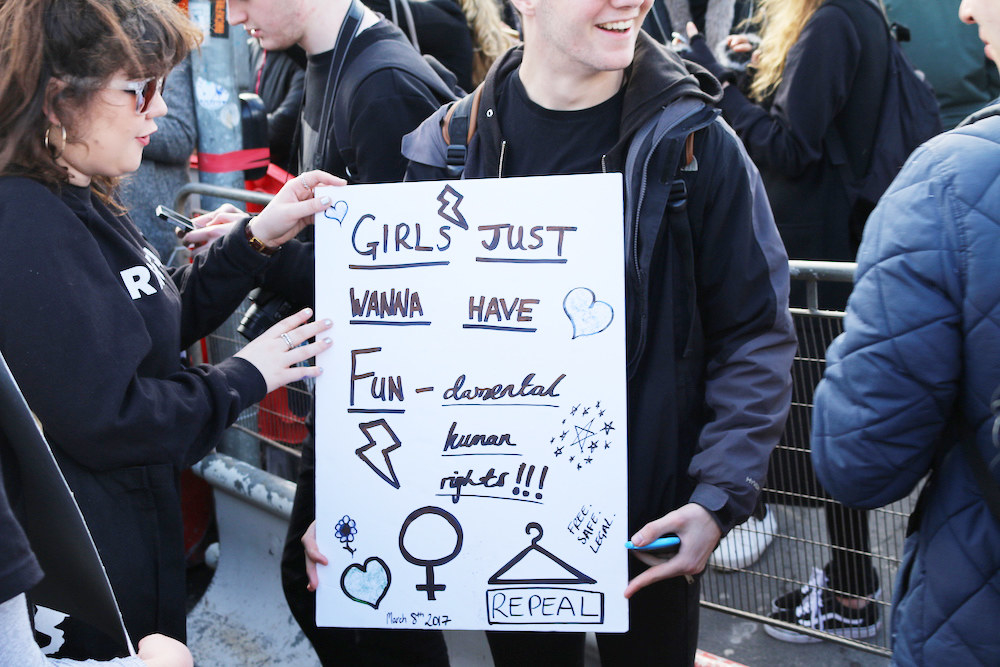 GIRLS JUST
WANNA HAVE
FUN - damental
human
rights!!!
FREE.
SAFE.
LEGAL.
REPEAL
March 8th 2017
R